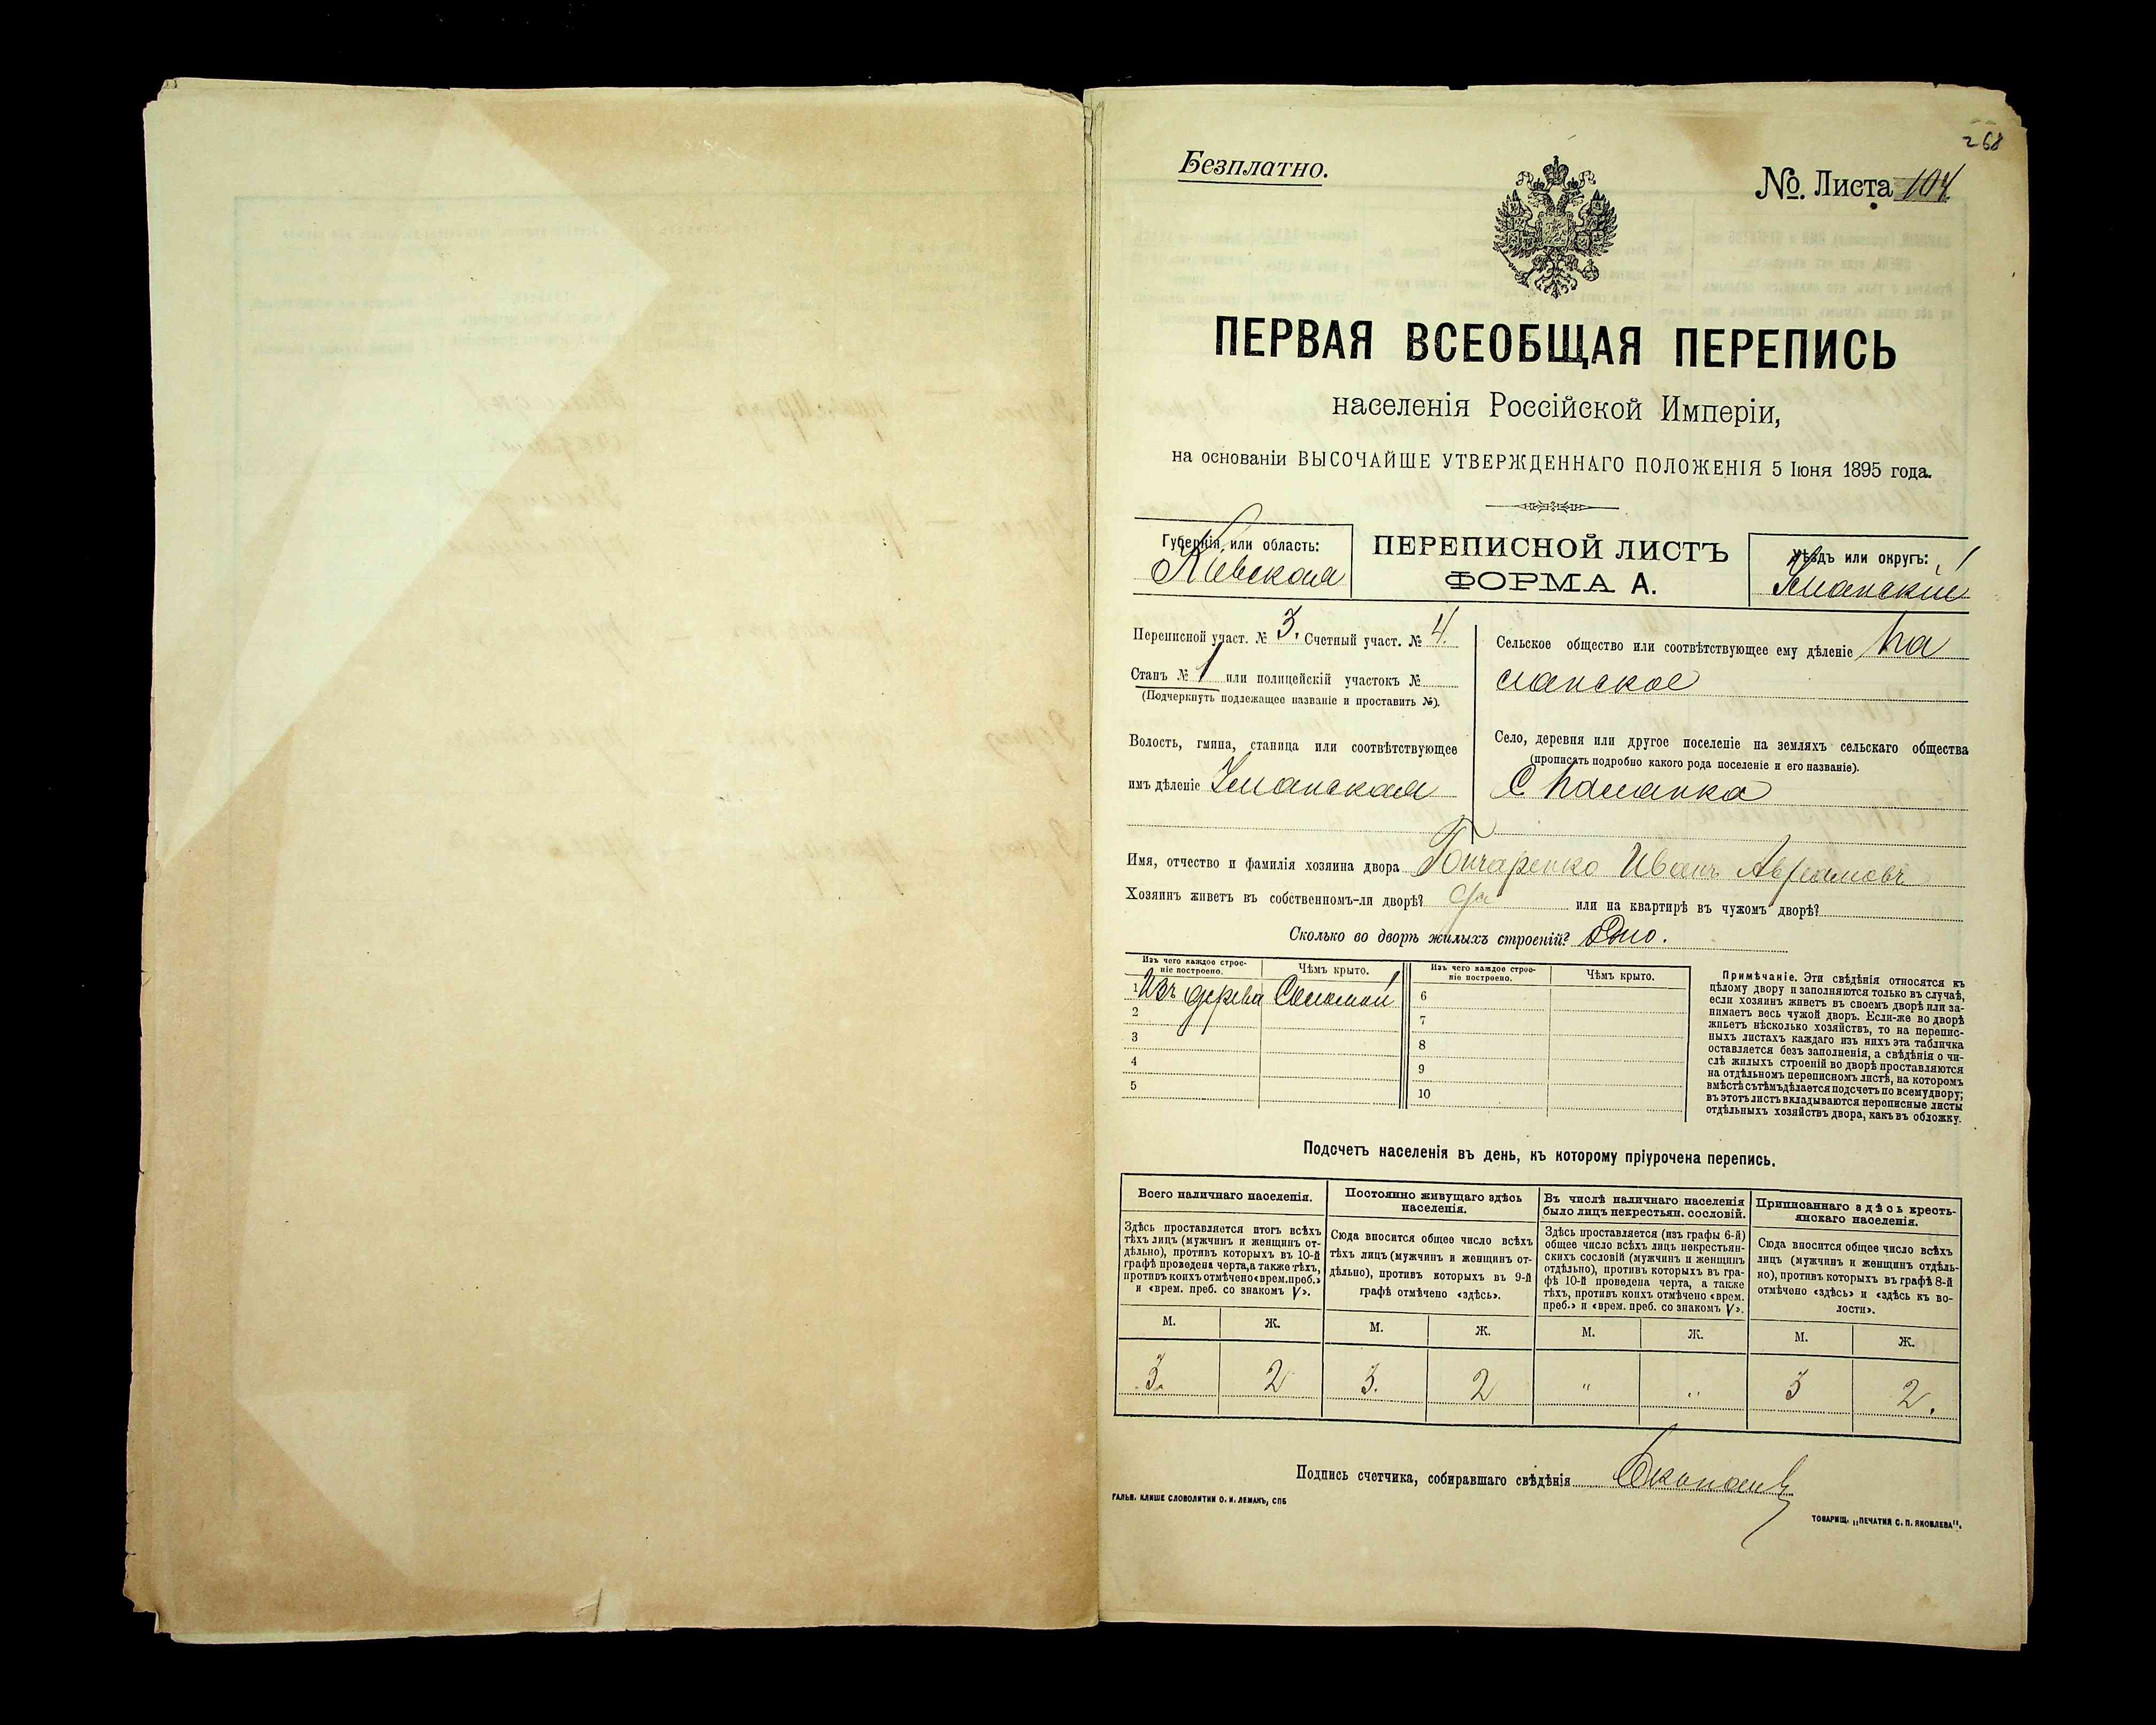 268
Безплатно.
№ Листа 104.
ПЕРВАЯ ВСЕОБЩАЯ ПЕРЕПИСЬ
населенія Россійской Имперіи,
на основаніи ВЫСОЧАЙШЕ УТВЕРЖДЕННАГО ПОЛОЖЕНІЯ 5 Іюня 1895 года.
Губернія или область:
Кіевская
ПЕРЕПИСНОЙ ЛИСТЪ
ФОРМА А.
Уѣздъ или округъ:
Уманскій
Переписной участ. № 3, Счетный участ. № 4.
Станъ № 1 или полицейскій участокъ №
(Подчеркнуть подлежащее названіе и проставить №).
Волость, гмина, станица или соотвѣтствующее
имъ дѣленіе Уманская
Сельское общество или соотвѣтствующее ему дѣленіе Па
ланское
Село, деревня или другое поселеніе на земляхъ сельскаго общества
(прописать подробно какого рода поселеніе и его названіе).
С Паланка
Имя, отчество и фамилія хозяина двора Гончаренко Иванъ Аврамовъ
Хозяинъ живетъ въ собственномъ-ли дворѣ? Да или на квартирѣ въ чужомъ дворѣ?
Сколько во дворѣ жилыхъ строеній? Одно.
Изъ чего каждое строе-
ніе построено.
Чѣмъ крыто.
Изъ чего каждое строе-
ніе построено.
Чѣмъ крыто.
1 Изъ дерева Соломой 6
2 7
3 8
4 9
5 10
Примѣчаніе. Эти свѣдѣнія относятся къ
цѣлому двору и заполняются только въ случаѣ,
если хозяинъ живетъ въ своемъ дворѣ или за-
нимаетъ весь чужой дворъ. Если-же во дворѣ
живетъ нѣсколько хозяйствъ, то на перепис-
ныхъ листахъ каждаго изъ нихъ эта табличка
оставляется безъ заполненія, а свѣдѣнія о чи-
слѣ жилыхъ строеній во дворѣ проставляются
на отдѣльномъ переписномъ листѣ, на которомъ
вмѣстѣ съ тѣмъ дѣлается подсчетъ по всему двору;
въ этотъ листъ вкладываются переписные листы
отдѣльныхъ хозяйствъ двора, какъ въ обложку.
Подсчетъ населенія въ день, къ которому пріурочена перепись.
Всего наличнаго населенія.
Здѣсь проставляется итогъ всѣхъ
тѣхъ лицъ (мужчинъ и женщинъ от-
дѣльно), противъ которыхъ въ 10-й
графѣ проведена черта, а также тѣхъ,
противъ коихъ отмѣчено «врем. преб.»
и «врем. преб. со знакомъ V».
Постоянно живущаго здѣсь
населенія.
Сюда вносится общее число всѣхъ
тѣхъ лицъ (мужчинъ и женщинъ от-
дѣльно), противъ которыхъ въ 9-й
графѣ отмѣчено «здѣсь».
Въ числѣ наличнаго населенія
было лицъ некрестьян. сословій.
Здѣсь проставляется (изъ графы 6-й)
общее число всѣхъ лицъ некрестьян-
скихъ сословій (мужчинъ и женщинъ
отдѣльно), противъ которыхъ въ гра-
фѣ 10-й проведена черта, а также
тѣхъ, противъ коихъ отмѣчено «врем.
преб.» и «врем. преб. со знакомъ V».
Приписаннаго здѣсь кресть-
янскаго населенія.
Сюда вносится общее число всѣхъ
лицъ (мужчинъ и женщинъ отдѣль-
но), противъ которыхъ въ графѣ 8-й
отмѣчено «здѣсь» и «здѣсь къ во-
лости».
М. Ж. М. Ж. М. Ж. М. Ж.
3. 2 3. 2 " " 3 2.
Подпись счетчика, собиравшаго свѣдѣнія
ГАЛЬВ. КЛИШЕ СЛОВОЛИТНИ О. И. ЛЕМАНЪ, СПБ
ТОВАРИЩ. „ПЕЧАТНЯ С. П. ЯКОВЛЕВА".